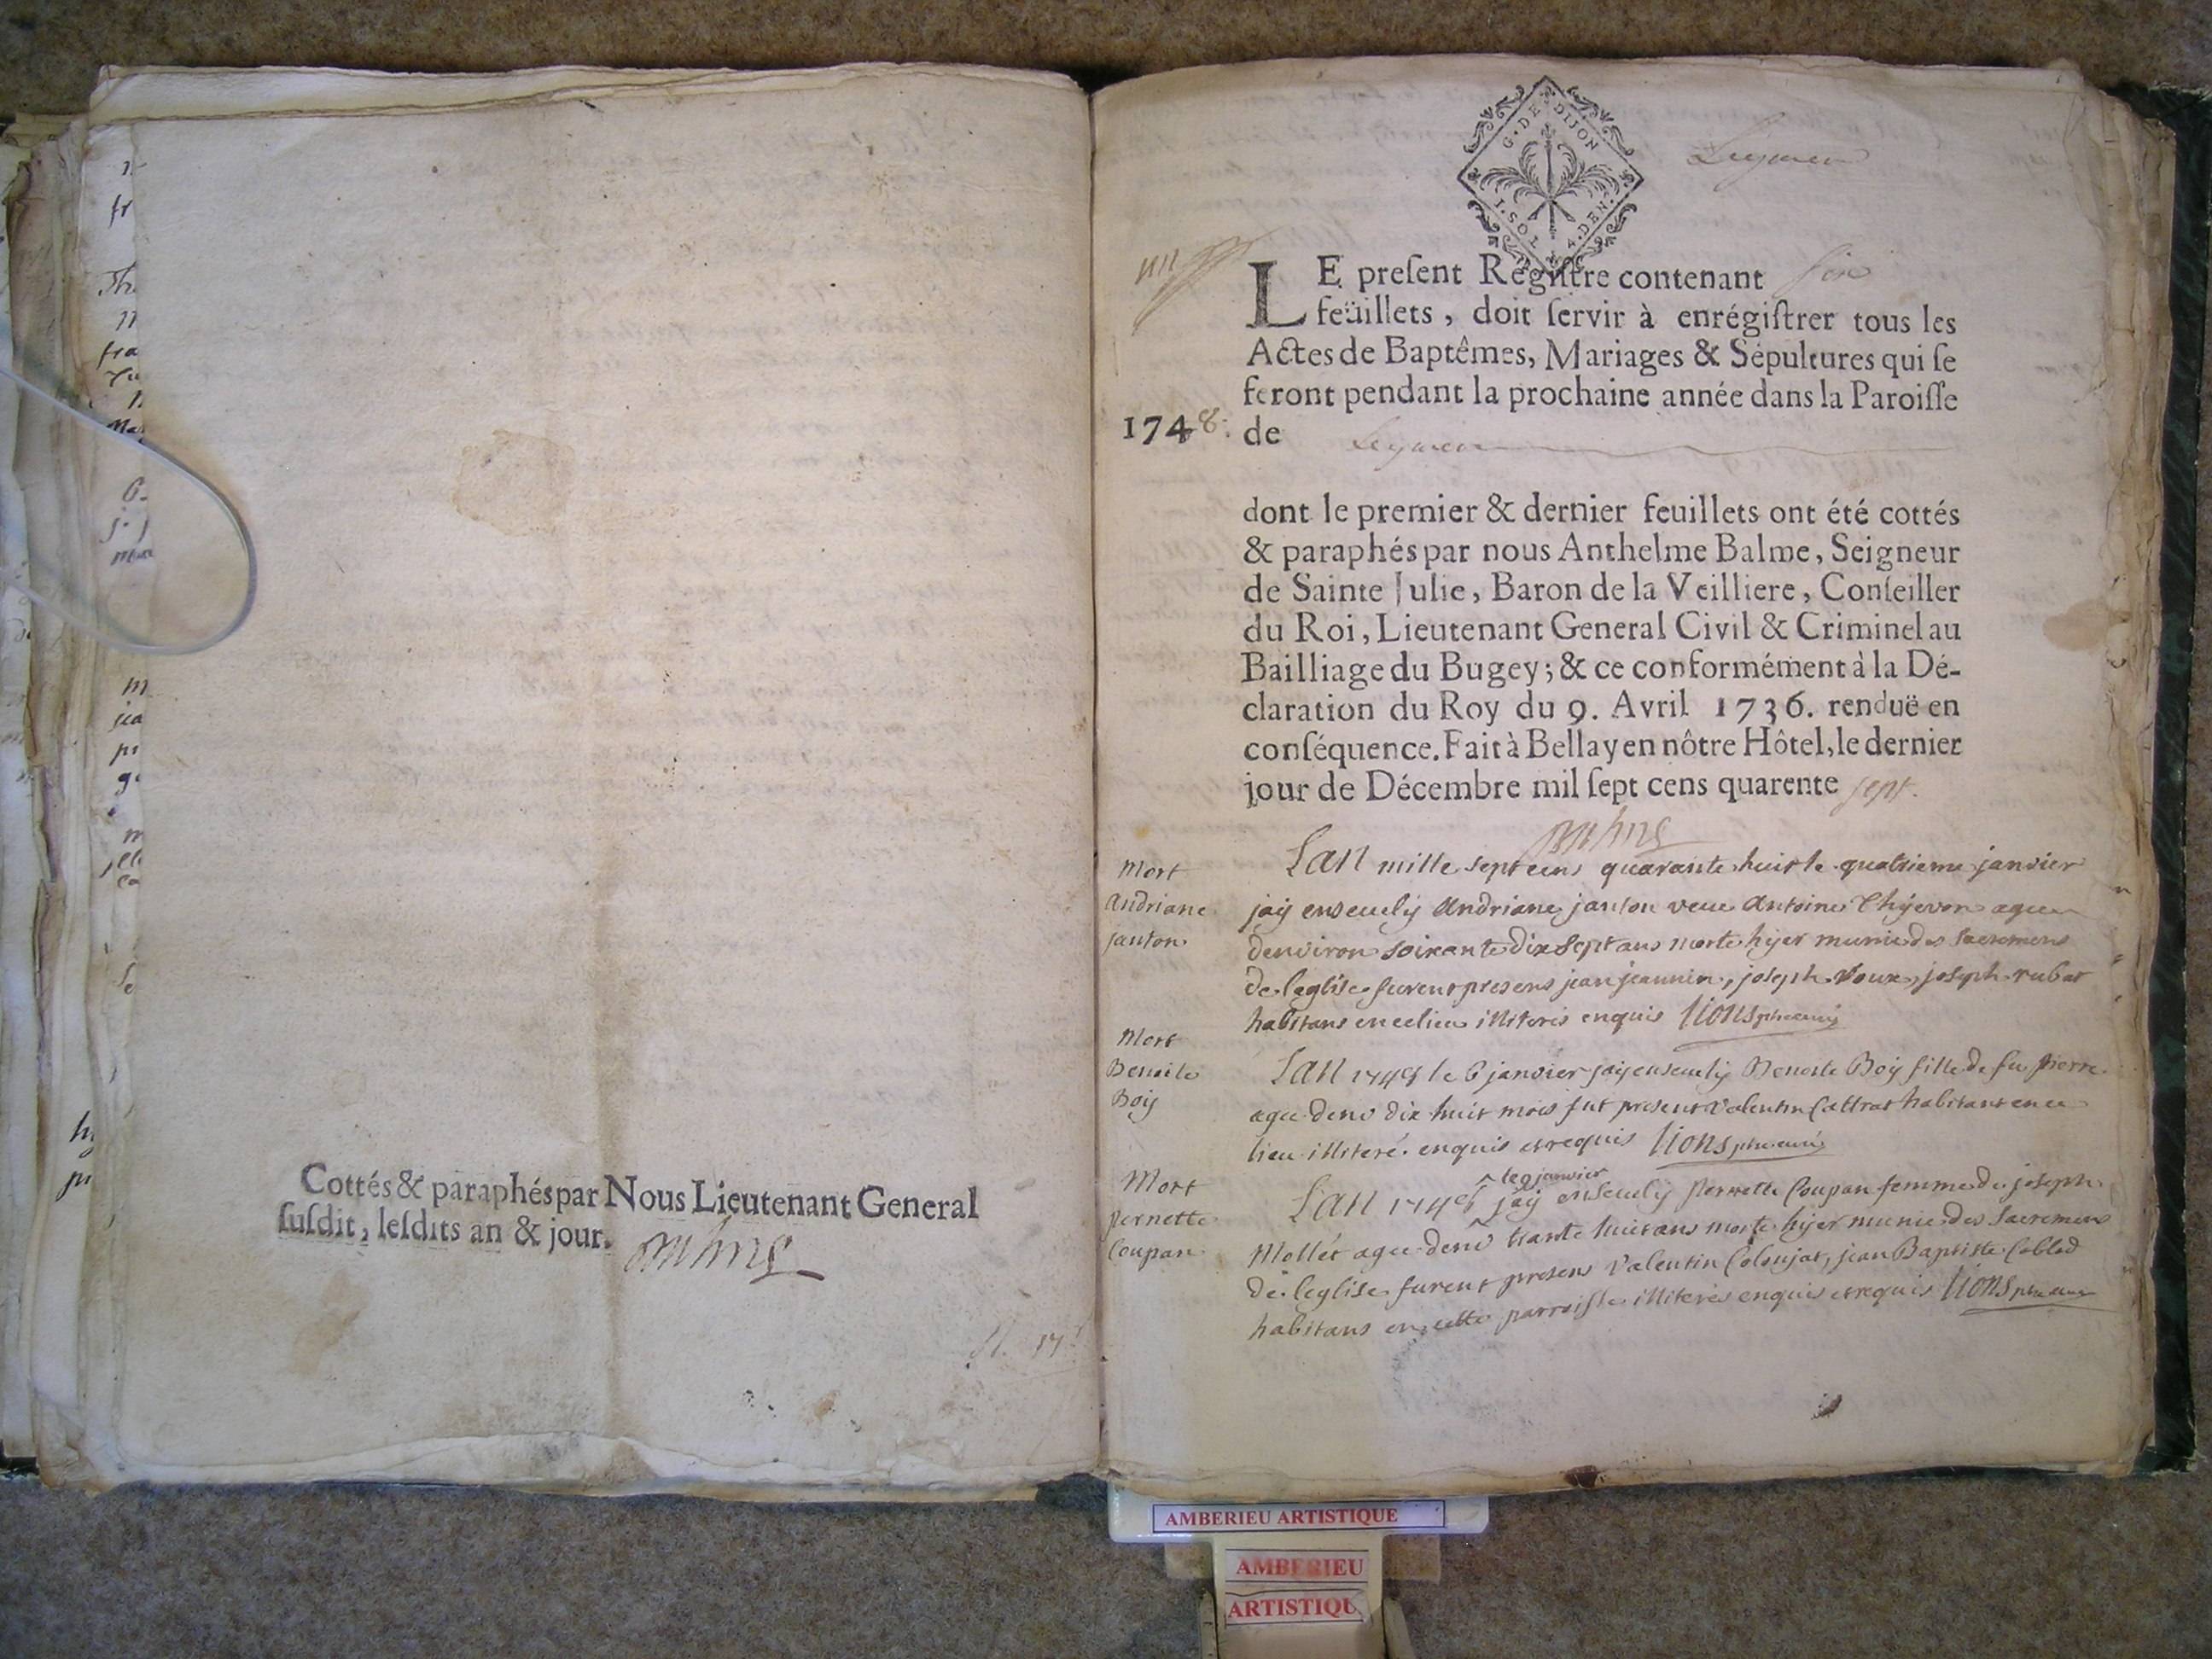 Cottés & paraphés par Nous Lieutenant General
suſdit, leſdits an & jour.
G. DE DIJON
I. SOL 4. DEN.
Leymen
LE preſent Régiſtre contenant six
feüillets, doit ſervir à enrégiſtrer tous les
Actes de Baptêmes, Mariages & Sépultures qui ſe
feront pendant la prochaine année dans la Paroiſſe
1748. de Leymen
dont le premier & dernier feuillets ont été cottés
& paraphés par nous Anthelme Balme, Seigneur
de Sainte Julie, Baron de la Veilliere, Conſeiller
du Roi, Lieutenant General Civil & Criminel au
Bailliage du Bugey; & ce conformément à la Dé-
claration du Roy du 9. Avril 1736. renduë en
conſéquence. Fait à Bellay en nôtre Hôtel, le dernier
jour de Décembre mil ſept cens quarente sept.
Mort
Andriane
janton
Lan mille sept cens quarante huit le quatrieme janvier
jaÿ enseuelÿ Andriane janton veue Antoine Chÿevon agee
denviron soixante dix sept ans morte hÿer munie des Sacremens
de leglise furent presens jean jeannin, joseph Roux, joseph rubat
habitans en ce lieu illiteris enquis Lions
Mort
Benoite
Boÿ
Lan 1748 le 6 janvier jaÿ enseuelÿ Benoite Boÿ fille de fu pierre
agee denv dix huit mois fut present Valentin Cattrat habitant en ce
lieu illiteré enquis et requis Lions
Mort
pernette
Coupan
le 9 janvier
Lan 1748 jaÿ enseuelÿ pernette Coupan femme de joseph
Mollet agee denv trante huit ans morte hÿer munie des Sacremens
de leglise furent presens Valentin Colonjat, jean Baptiste
habitans en cette parroisse illiterés enquis et requis Lions
AMBERIEU ARTISTIQUE
AMBERIEU
ARTISTIQU